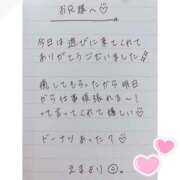 お兄様へ♡
今日は遊びに来てくれて
ありがとうございました
癒してもらったから明日
から仕事頑張れる〜!
って言ってくれて嬉しい♡
ピーナツあった？
えまより